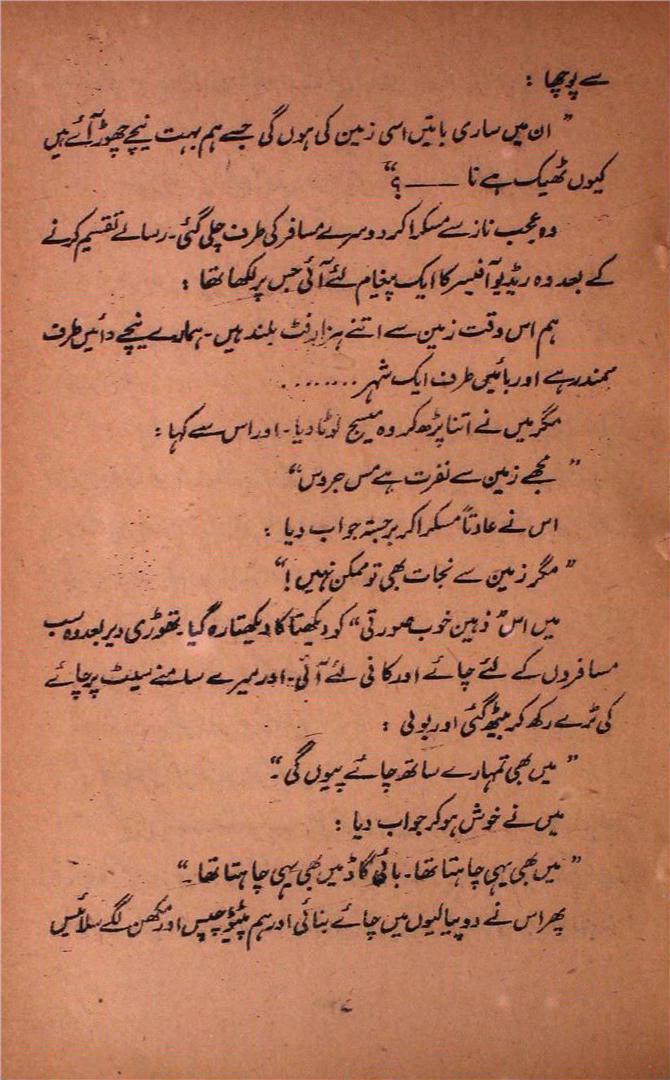 سے پوچھا :
” ان میں ساری باتیں اسی زمین کی ہوں گی جسے ہم بہت نیچے چھوڑ آئے ہیں
کیوں ٹھیک ہے نا ——— ؟“
وہ عجب ناز سے مسکرا کر دوسرے مسافر کی طرف چلی گئی۔ رسالے تقسیم کرنے
کے بعد وہ ریڈیو آفیسر کا ایک پیغام لئے آئی جس پر لکھا تھا :
ہم اس وقت زمین سے اتنے ہزار فٹ بلند ہیں۔ ہمارے نیچے دائیں طرف
سمندر ہے اور بائیں طرف ایک شہر ........
مگر میں نے اتنا پڑھ کر وہ میسج لوٹا دیا۔ اور اس سے کہا :
” مجھے زمین سے نفرت ہے مس جروس“
اس نے عادتاً مسکرا کر برجستہ جواب دیا :
” مگر زمین سے نجات بھی تو ممکن نہیں !“
میں اس ”ذہین خوب صورتی“ کو دیکھتا کا دیکھتا رہ گیا۔ تھوڑی دیر بعد وہ سب
مسافروں کے لئے چائے اور کافی لئے آئی۔ اور میرے سامنے سیٹ پر چائے
کی ٹرے رکھ کر بیٹھ گئی اور بولی :
” میں بھی تمہارے ساتھ چائے پیوں گی۔“
میں نے خوش ہو کر جواب دیا :
” میں بھی یہی چاہتا تھا۔ بائی گاڈ میں بھی یہی چاہتا تھا۔“
پھر اس نے دو پیالیوں میں چائے بنائی اور ہم پٹیٹو چپس اور مکھن لگے سلائیس